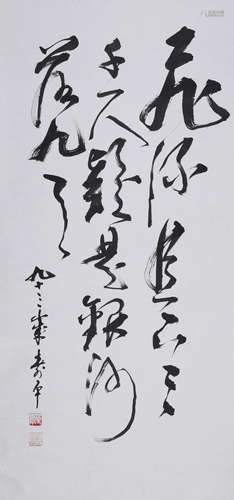 飛流直下三
千尺疑是銀河
落九天
九十三歲